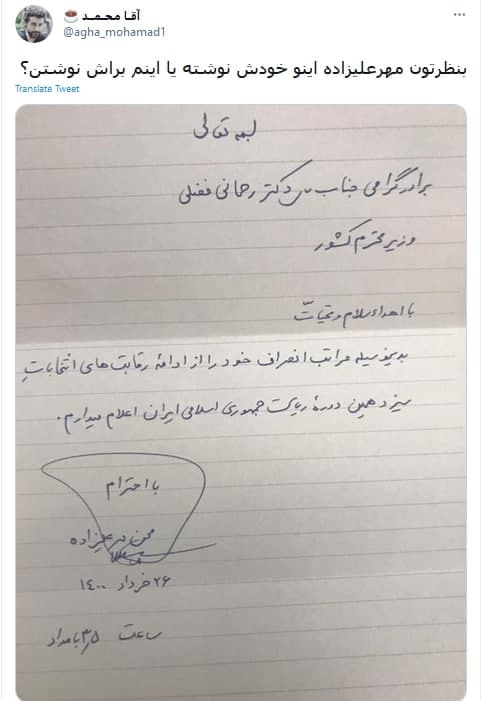 آقا محمد
@agha_mohamad1
بنظرتون مهرعلیزاده اینو خودش نوشته یا اینم براش نوشتن؟
Translate Tweet
بسمه تعالی
برادر گرامی جناب دکتر رحمانی فضلی
وزیر محترم کشور
با اهداء سلام و تحیات
بدینوسیله مراتب انصراف خود را از ادامه رقابت های انتخاباتِ
سیزدهمین دورهٔ ریاست جمهوری اسلامی ایران اعلام میدارم.
با احترام
محسن مهرعلیزاده
۲۶ خرداد ۱۴۰۰
ساعت ۳٫۵ بامداد